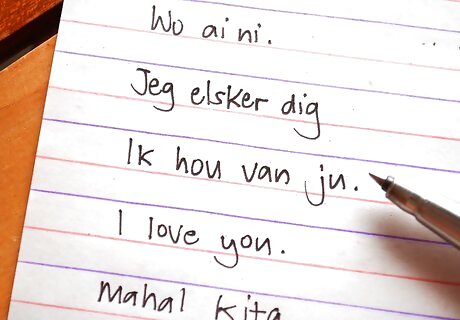 Wo ai ni.
Jeg elsker dig
Ik hou van ju.
I love you.
Mahal Kita